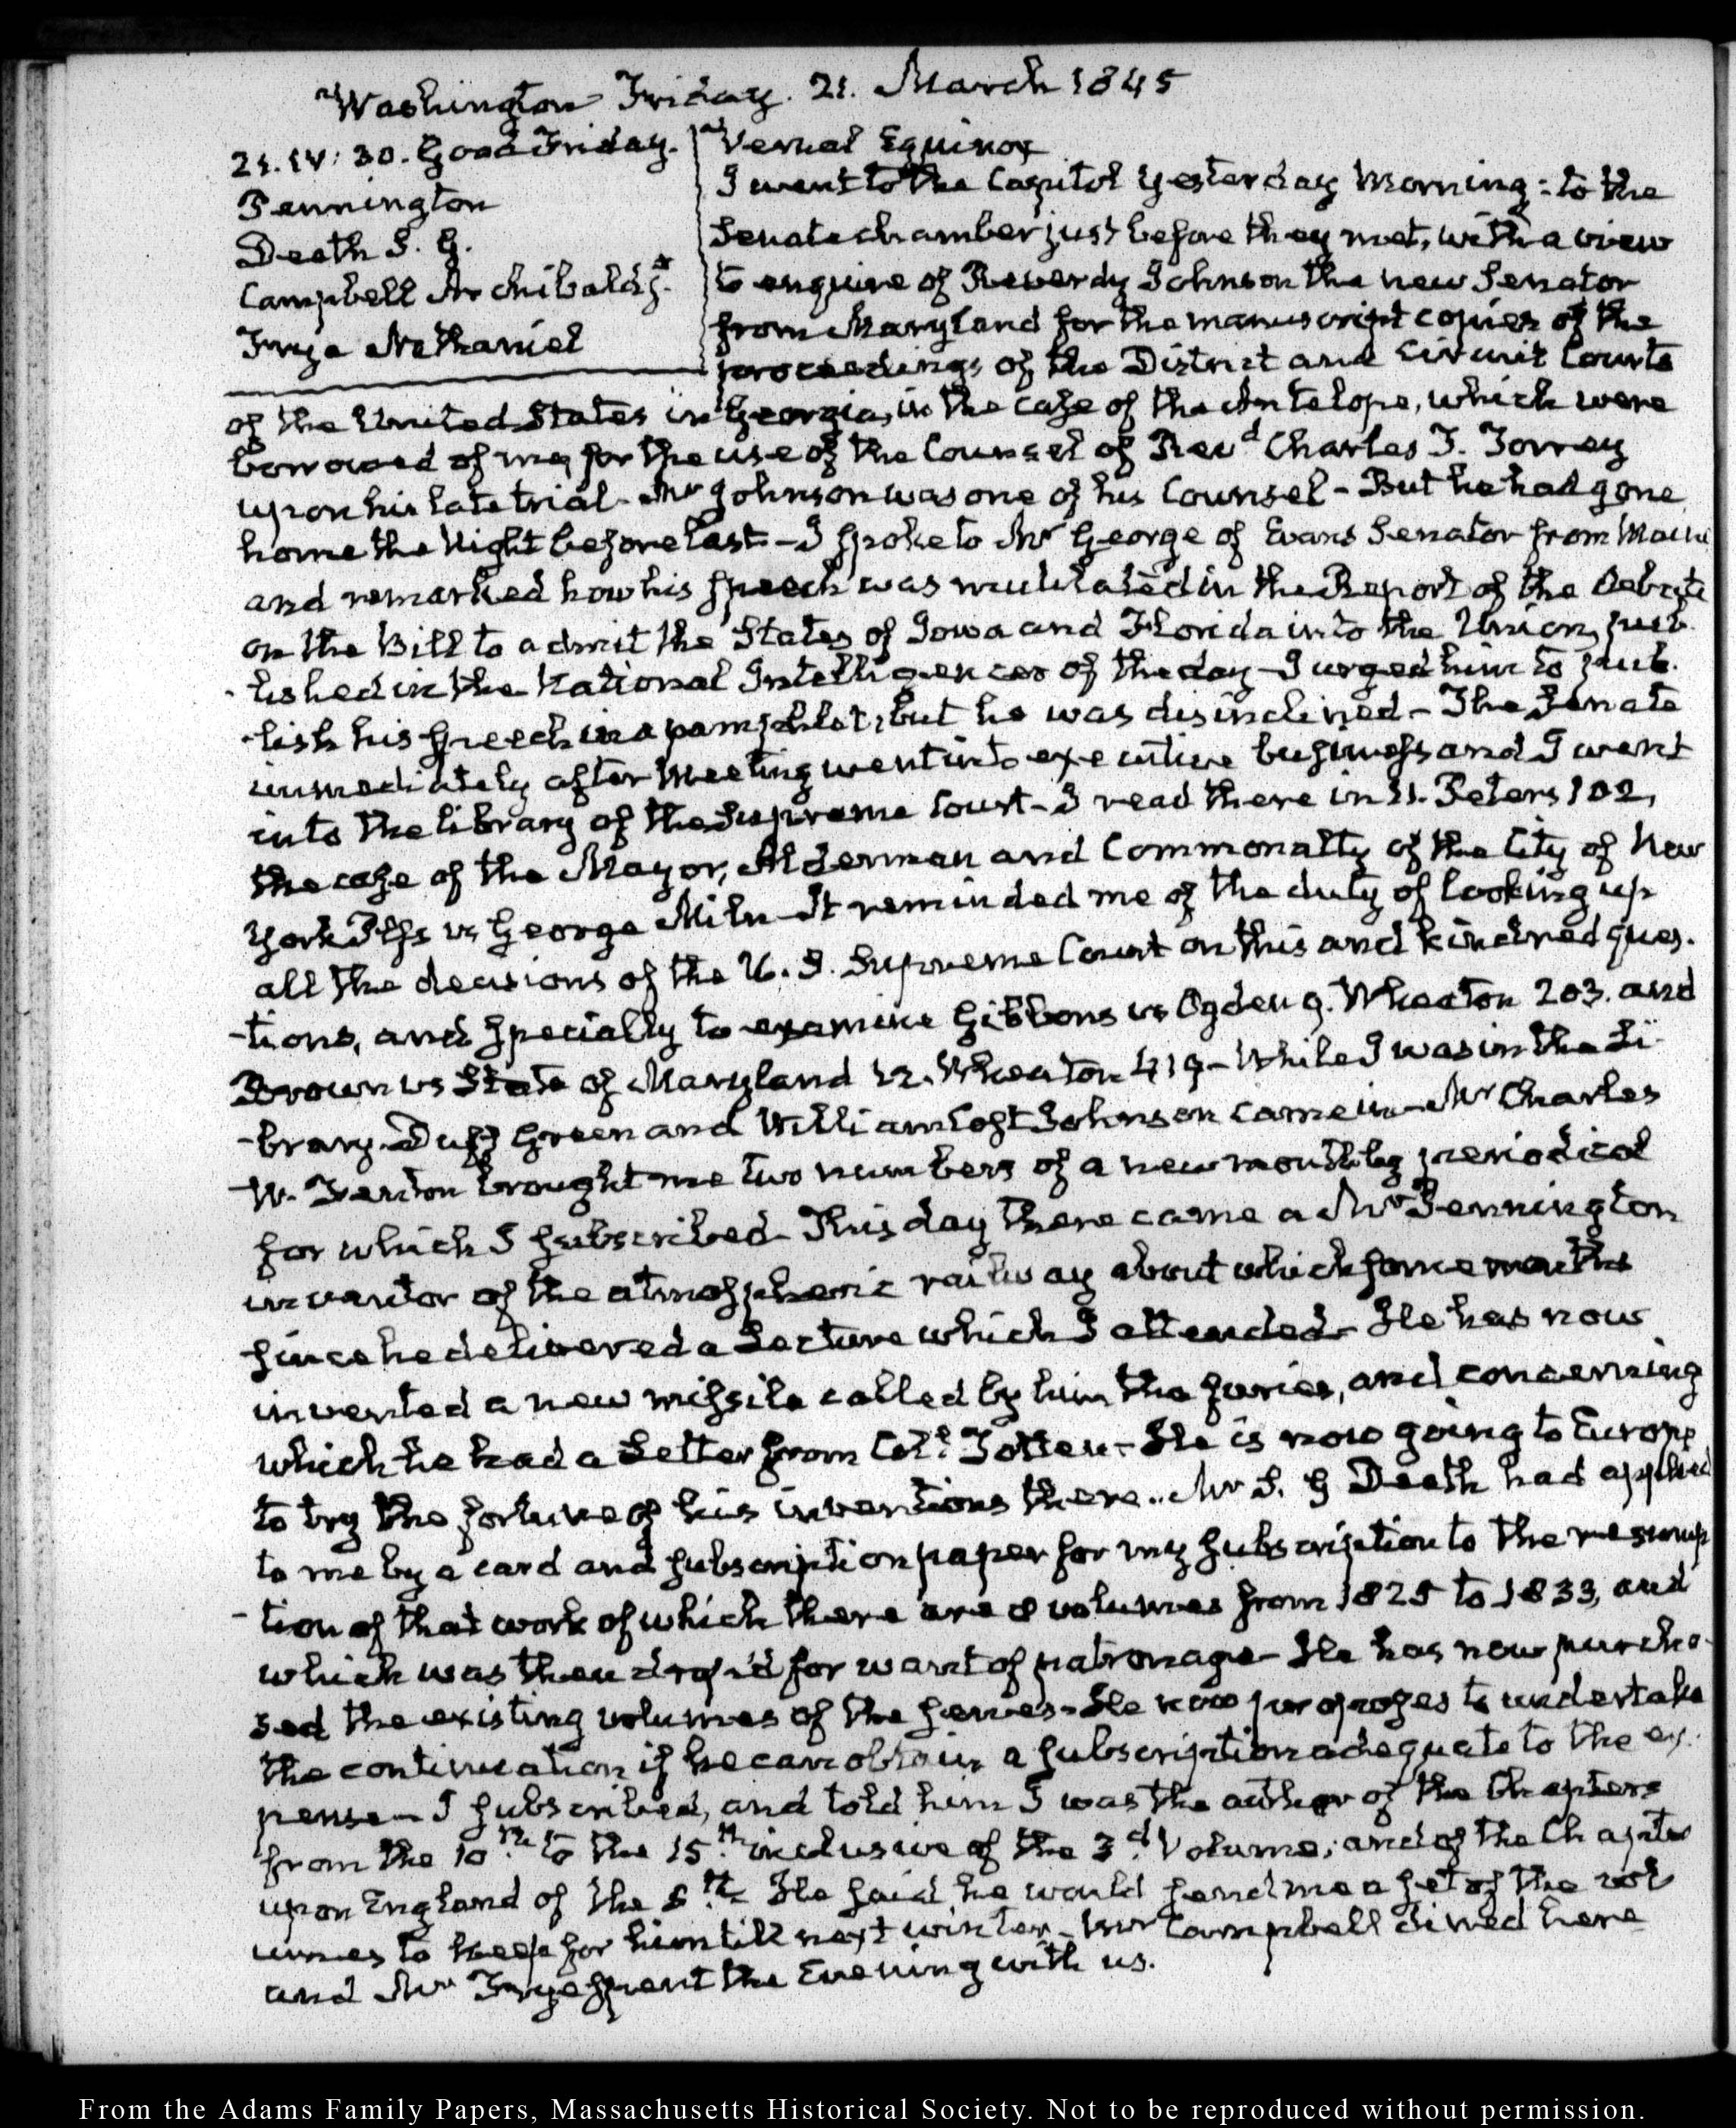 Washington Friday. 21. March 1845
21. IV: 30. Good Friday.
Pennington
Death S. G.
Campbell Archibald
Frye Nathaniel
Vernal Equinox
I went to the Capitol yesterday Morning: to the
Senate chamber just before they met, with a view
to enquire of Reverdy Johnson the new Senator
from Maryland for the manuscript copies of the
proceedings of the District and Circuit Courts
of the United States in Georgia, in the case of the Antelope, which were
borrowed of me, for the use of the Counsel of Revd Charles T. Torrey
upon his late trial - Mr Johnson was one of his Counsel - But he had gone
home the Night before last - I spoke to Mr George of Evans Senator from Maine
and remarked how his speech was mutilated in the Report of the Debate
on the Bill to admit the States of Iowa and Florida into the Union, pub-
-lished in the National Intelligencer of the day - I urged him to pub-
-lish his speech in a pamphlet, but he was disinclined - The Senate
immediately after Meeting went into executive business and I went
into the library of the Supreme Court - I read there in 11. Peters 102,
the case of the Mayor, Aldermen and Commonalty of the City of New
York Plfs vs George Miln - It reminded me of the duty of looking up
all the decisions of the U. S. Supreme Court on this and kindred ques-
-tions, and specially to examine Gibbons vs Ogden 9. Wheaton 203. and
Brown vs State of Maryland 12. Wheaton 419 - While I was in the Li-
-brary Duff Green and William Cost Johnson came in - Mr Charles
W. Fenton brought me two numbers of a new monthly periodical
for which I subscribed - This day there came a Mr Pennington
inventor of the atmospheric railway about which some months
since he delivered a Lecture which I attended - He has now
invented a new missile called by him the furies, and concerning
which he had a Letter from Coll. Totten - He is now going to Europe
to try the fortune of his inventions there.. Mr S. G Death had applied
to me by a card and subscription paper for my subscription to the resump
-tion of that work of which there are 8 volumes from 1825 to 1833, and
which was then drop'd for want of patronage - He has now purcha-
sed the existing volumes of the series - He now proposes to undertake
the continuation if he can obtain a subscription adequate to the ex-
pense - I subscribed, and told him I was the author of the Chapters
from the 10th to the 15th inclusive of the 3d Volume; and of the Chapter
upon England of the 5th He said he would send me a set of the vol
umes to keep for him till next winter - Mr Campbell dined here
and Mr Frye spent the Evening with us.
From the Adams Family Papers, Massachusetts Historical Society. Not to be reproduced without permission.